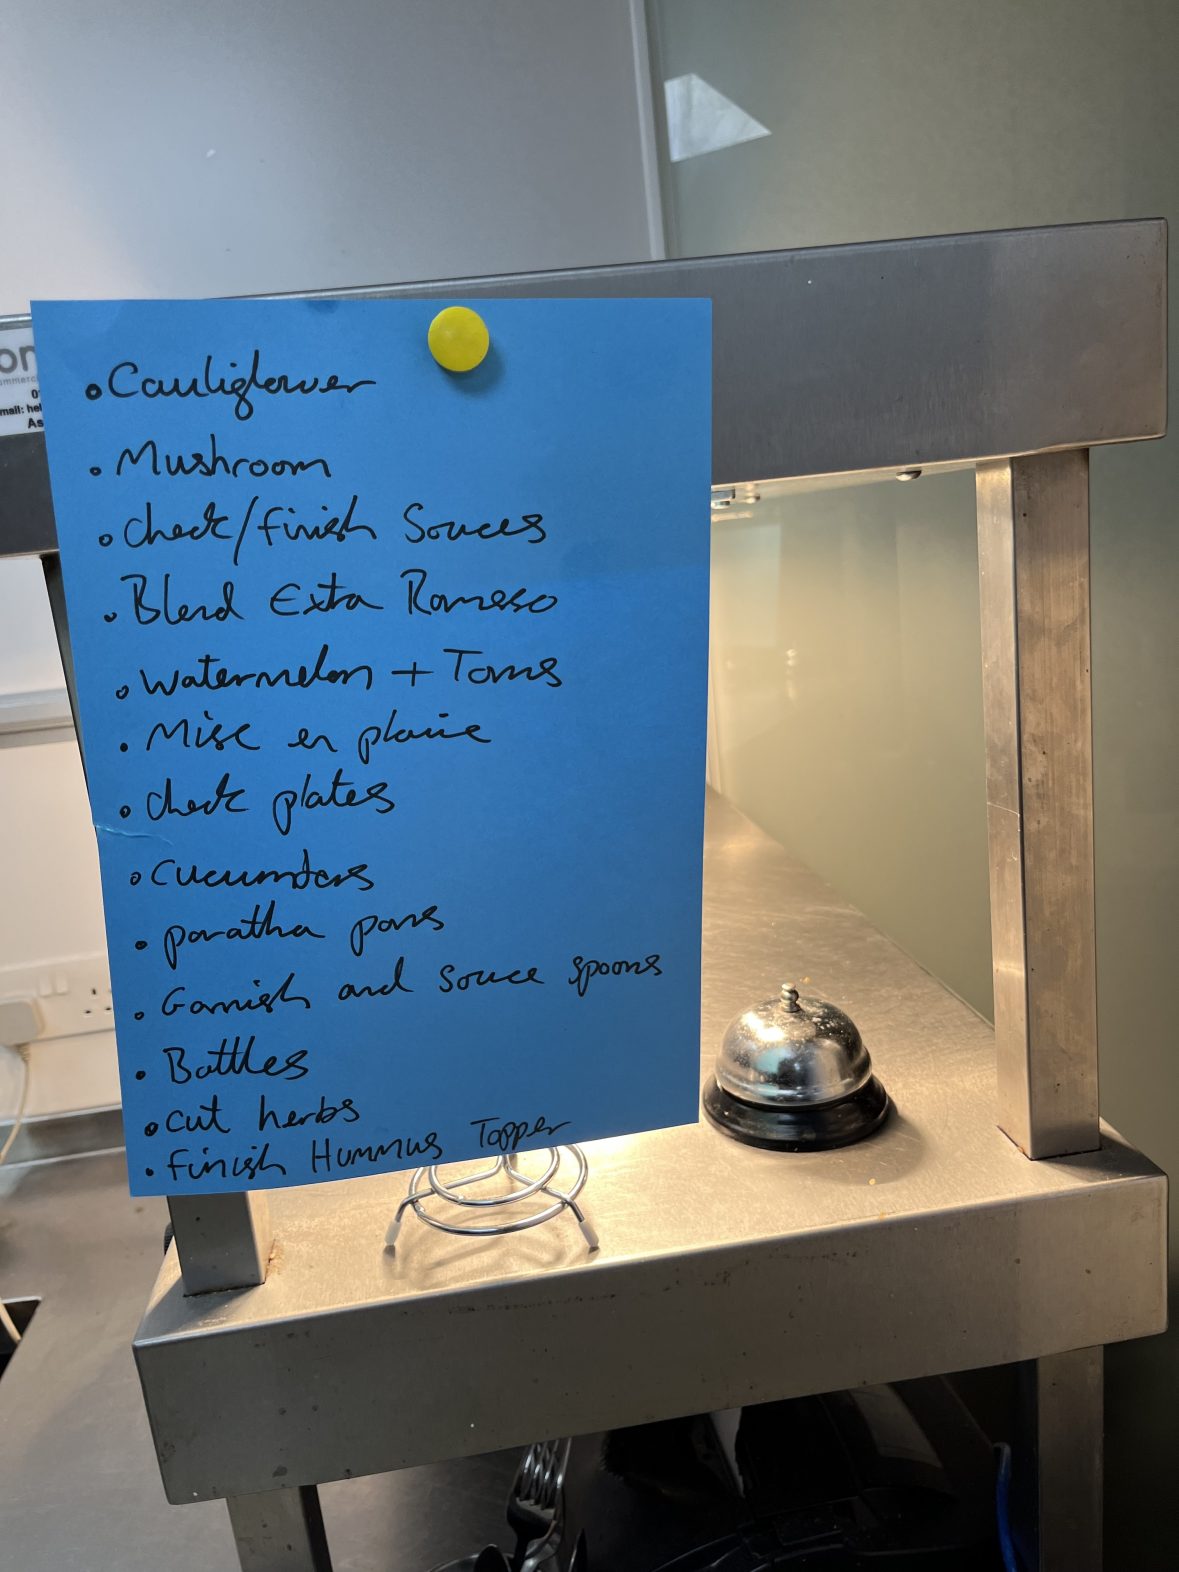 on
ommerc
0
mail: hel
As
• Cauliglower
• Mushroom
• Check/finish Sauces
• Blend Extra Romesso
• Watermelon + Toms
• Mise en plaice
• Check plates
• Cucumbers
• paratha pans
• Garnish and sauce spoons
• Bottles
• cut herbs
• Finish Hummus Topper